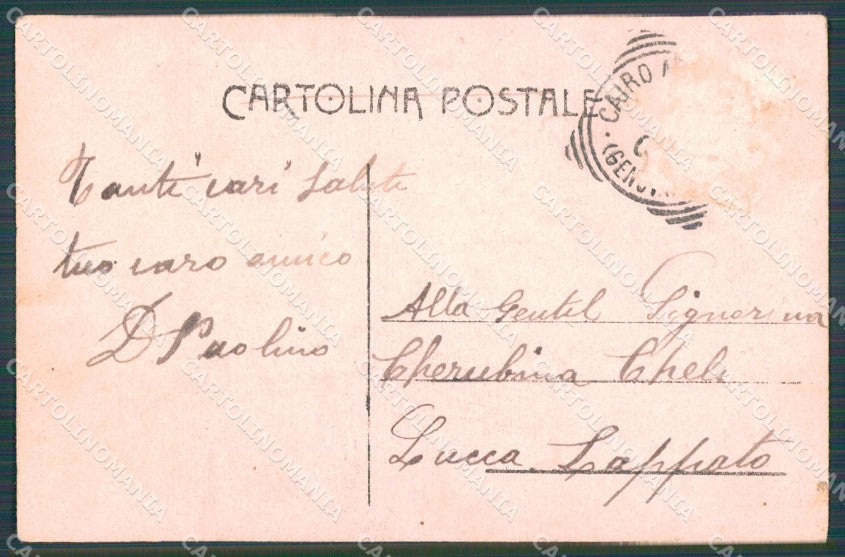 CARTOLINA POSTALE
CAIRO
(GENOV
Tanti cari saluti
tuo caro amico
D Paolino
Alla Gentil Signorina
Cherubina Cheli
Lucca Lappato
CARTOLINOMANIA